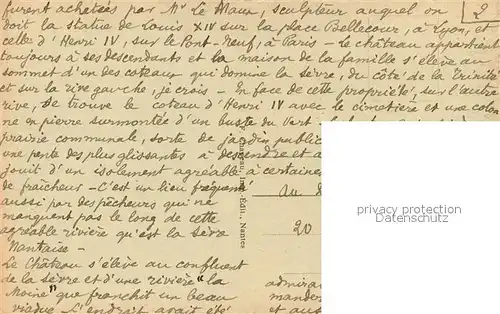 furent achetées par Mr Le Maux, sculpteur auquel on
doit la statue de Louis XIV sur la place Bellecour, à Lyon, et
celle d'Henri IV, sur le Pont-Neuf, à Paris - Le château appartient
toujours à ses descendants et la maison de la famille s'élève au
sommet d'un des coteaux qui domine la Sèvre, du côté de la Trinité
et sur la rive gauche, je crois - En face de cette propriété, sur l'autre
rive, se trouve le coteau d'Henri IV avec le cimetière et une colon
ne en pierre surmontée d'un buste du Vert
prairie communale, sorte de jardin public
une pente des plus glissantes à descendre et a
jouit d'un isolement agréable à certaines
de fraîcheur - C'est un lieu fréquenté
aussi par des pêcheurs qui ne
manquent pas le long de cette
agréable rivière qu'est la Sèvre
Nantaise -
Le Château s'élève au confluent
de la Sèvre et d'une rivière "la
Moine" que franchit un beau
viaduc. L'endroit avait été
2
Édit., Nantes
Au
20
admirar
mander
privacy protection
privacy protection